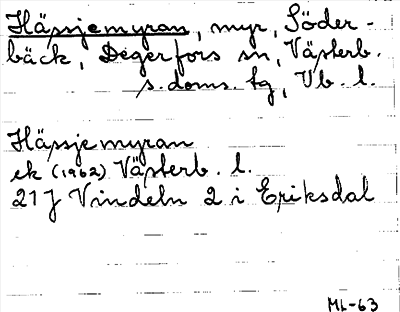 Hässjemyran, myr, Söder-
bäck, Degerfors sn, Västerb.
s. doms. tg, Vb. l.
Hässjemyran
ek (1962) Västerb. l.
21J Vindeln 2 i Eriksdal
ML-63